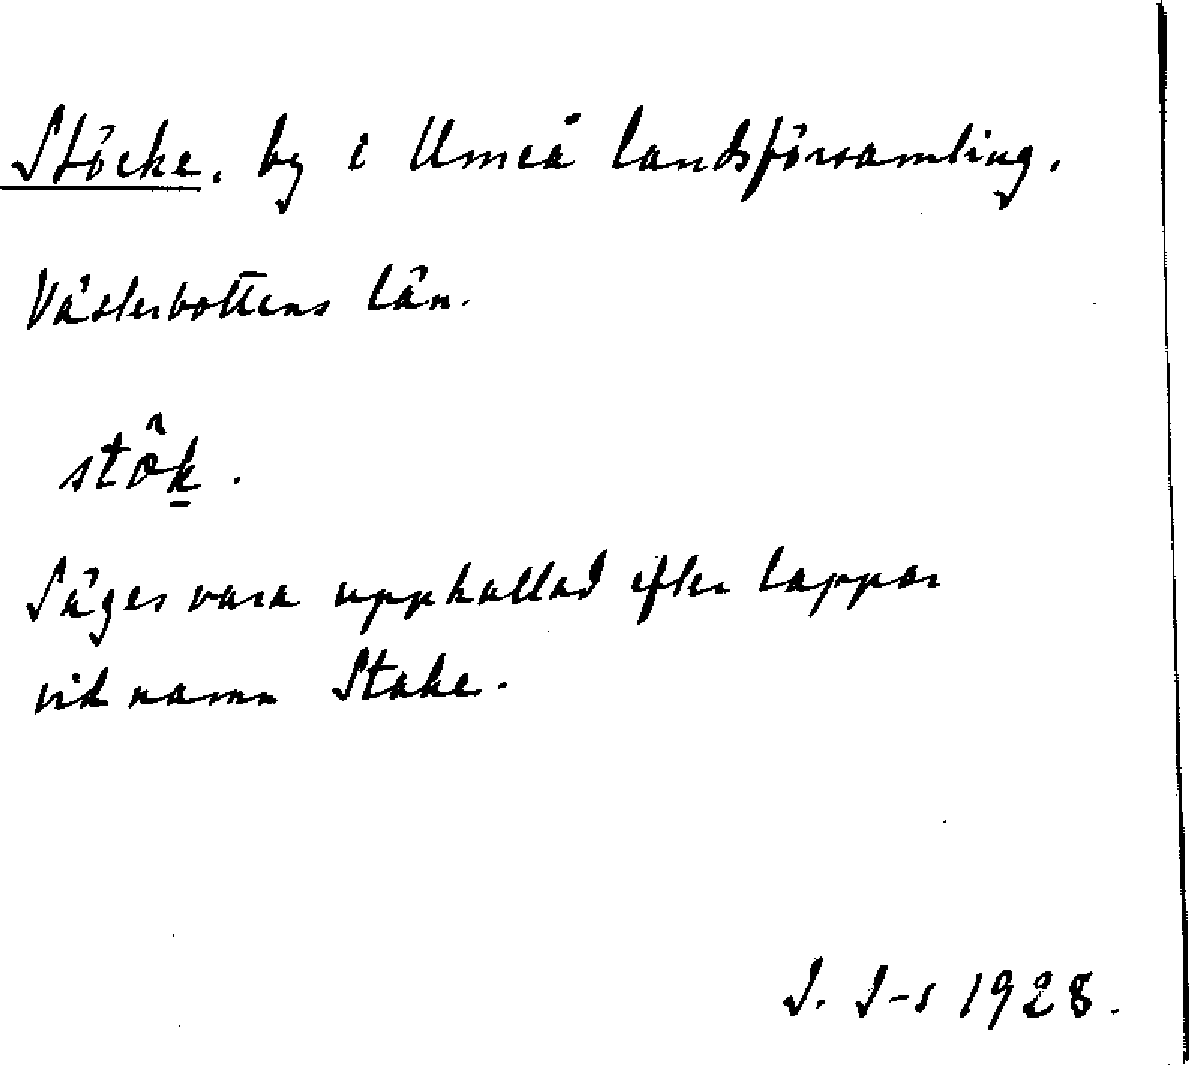 Stöcke. by i Umeå landsförsamling.
Västerbottens län.
stö̂k̲.
Säges vara uppkallad efter lappar
vid namn Stake.
J. J-s 1928.